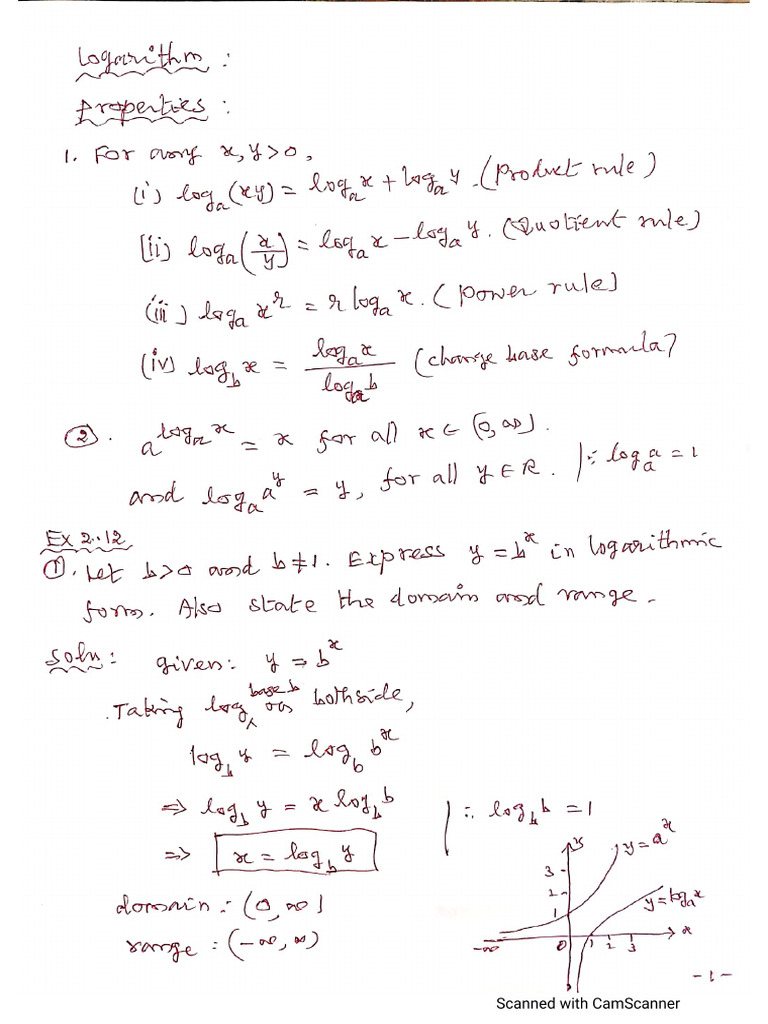 Logarithm :
Properties :
1. For any x, y > 0,
(i) logₐ(xy) = logₐx + logₐy. (Product rule)
(ii) logₐ(x/y) = logₐx − logₐy. (Quotient rule)
(iii) logₐxʳ = r logₐx. (Power rule)
(iv) log_b x = logₐx / logₐb (change base formula)
②. a^(logₐx) = x for all x ∈ (0, ∞).
and logₐa^y = y, for all y ∈ R. | ∵ logₐa = 1
Ex 2.12
①. Let b>0 and b≠1. Express y = b^x in logarithmic
form. Also state the domain and range.
Soln : given: y = b^x
Taking log base b on bothside,
log_b y = log_b b^x
⇒ log_b y = x log_b b | ∵ log_b b = 1
⇒ x = log_b y
domain : (0, ∞)
range : (−∞, ∞)
y
y = a^x
3
2
1
y = logₐx
-∞ 0 1 2 3 x
-1-
Scanned with CamScanner